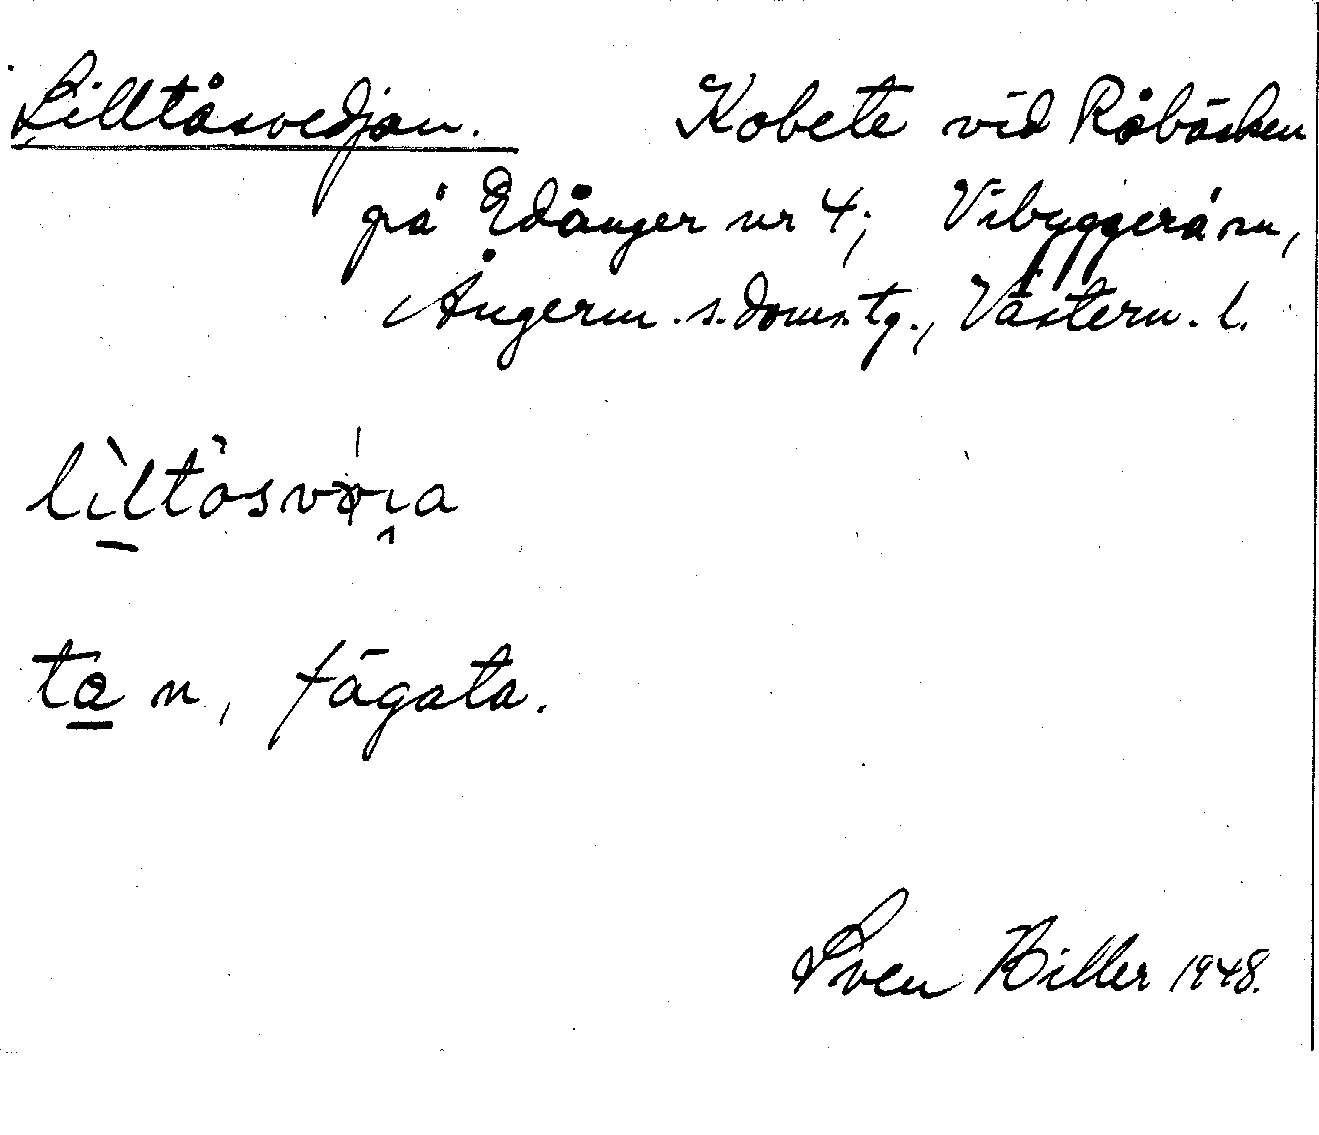 Lilltåsvedjan. Kobete vid Råbäcken
på Edånger nr 4; Vibyggerå sn,
Ångerm. s. doms. tg., Västern. l.
ta n, fägata.
Sven Hiller 1948.